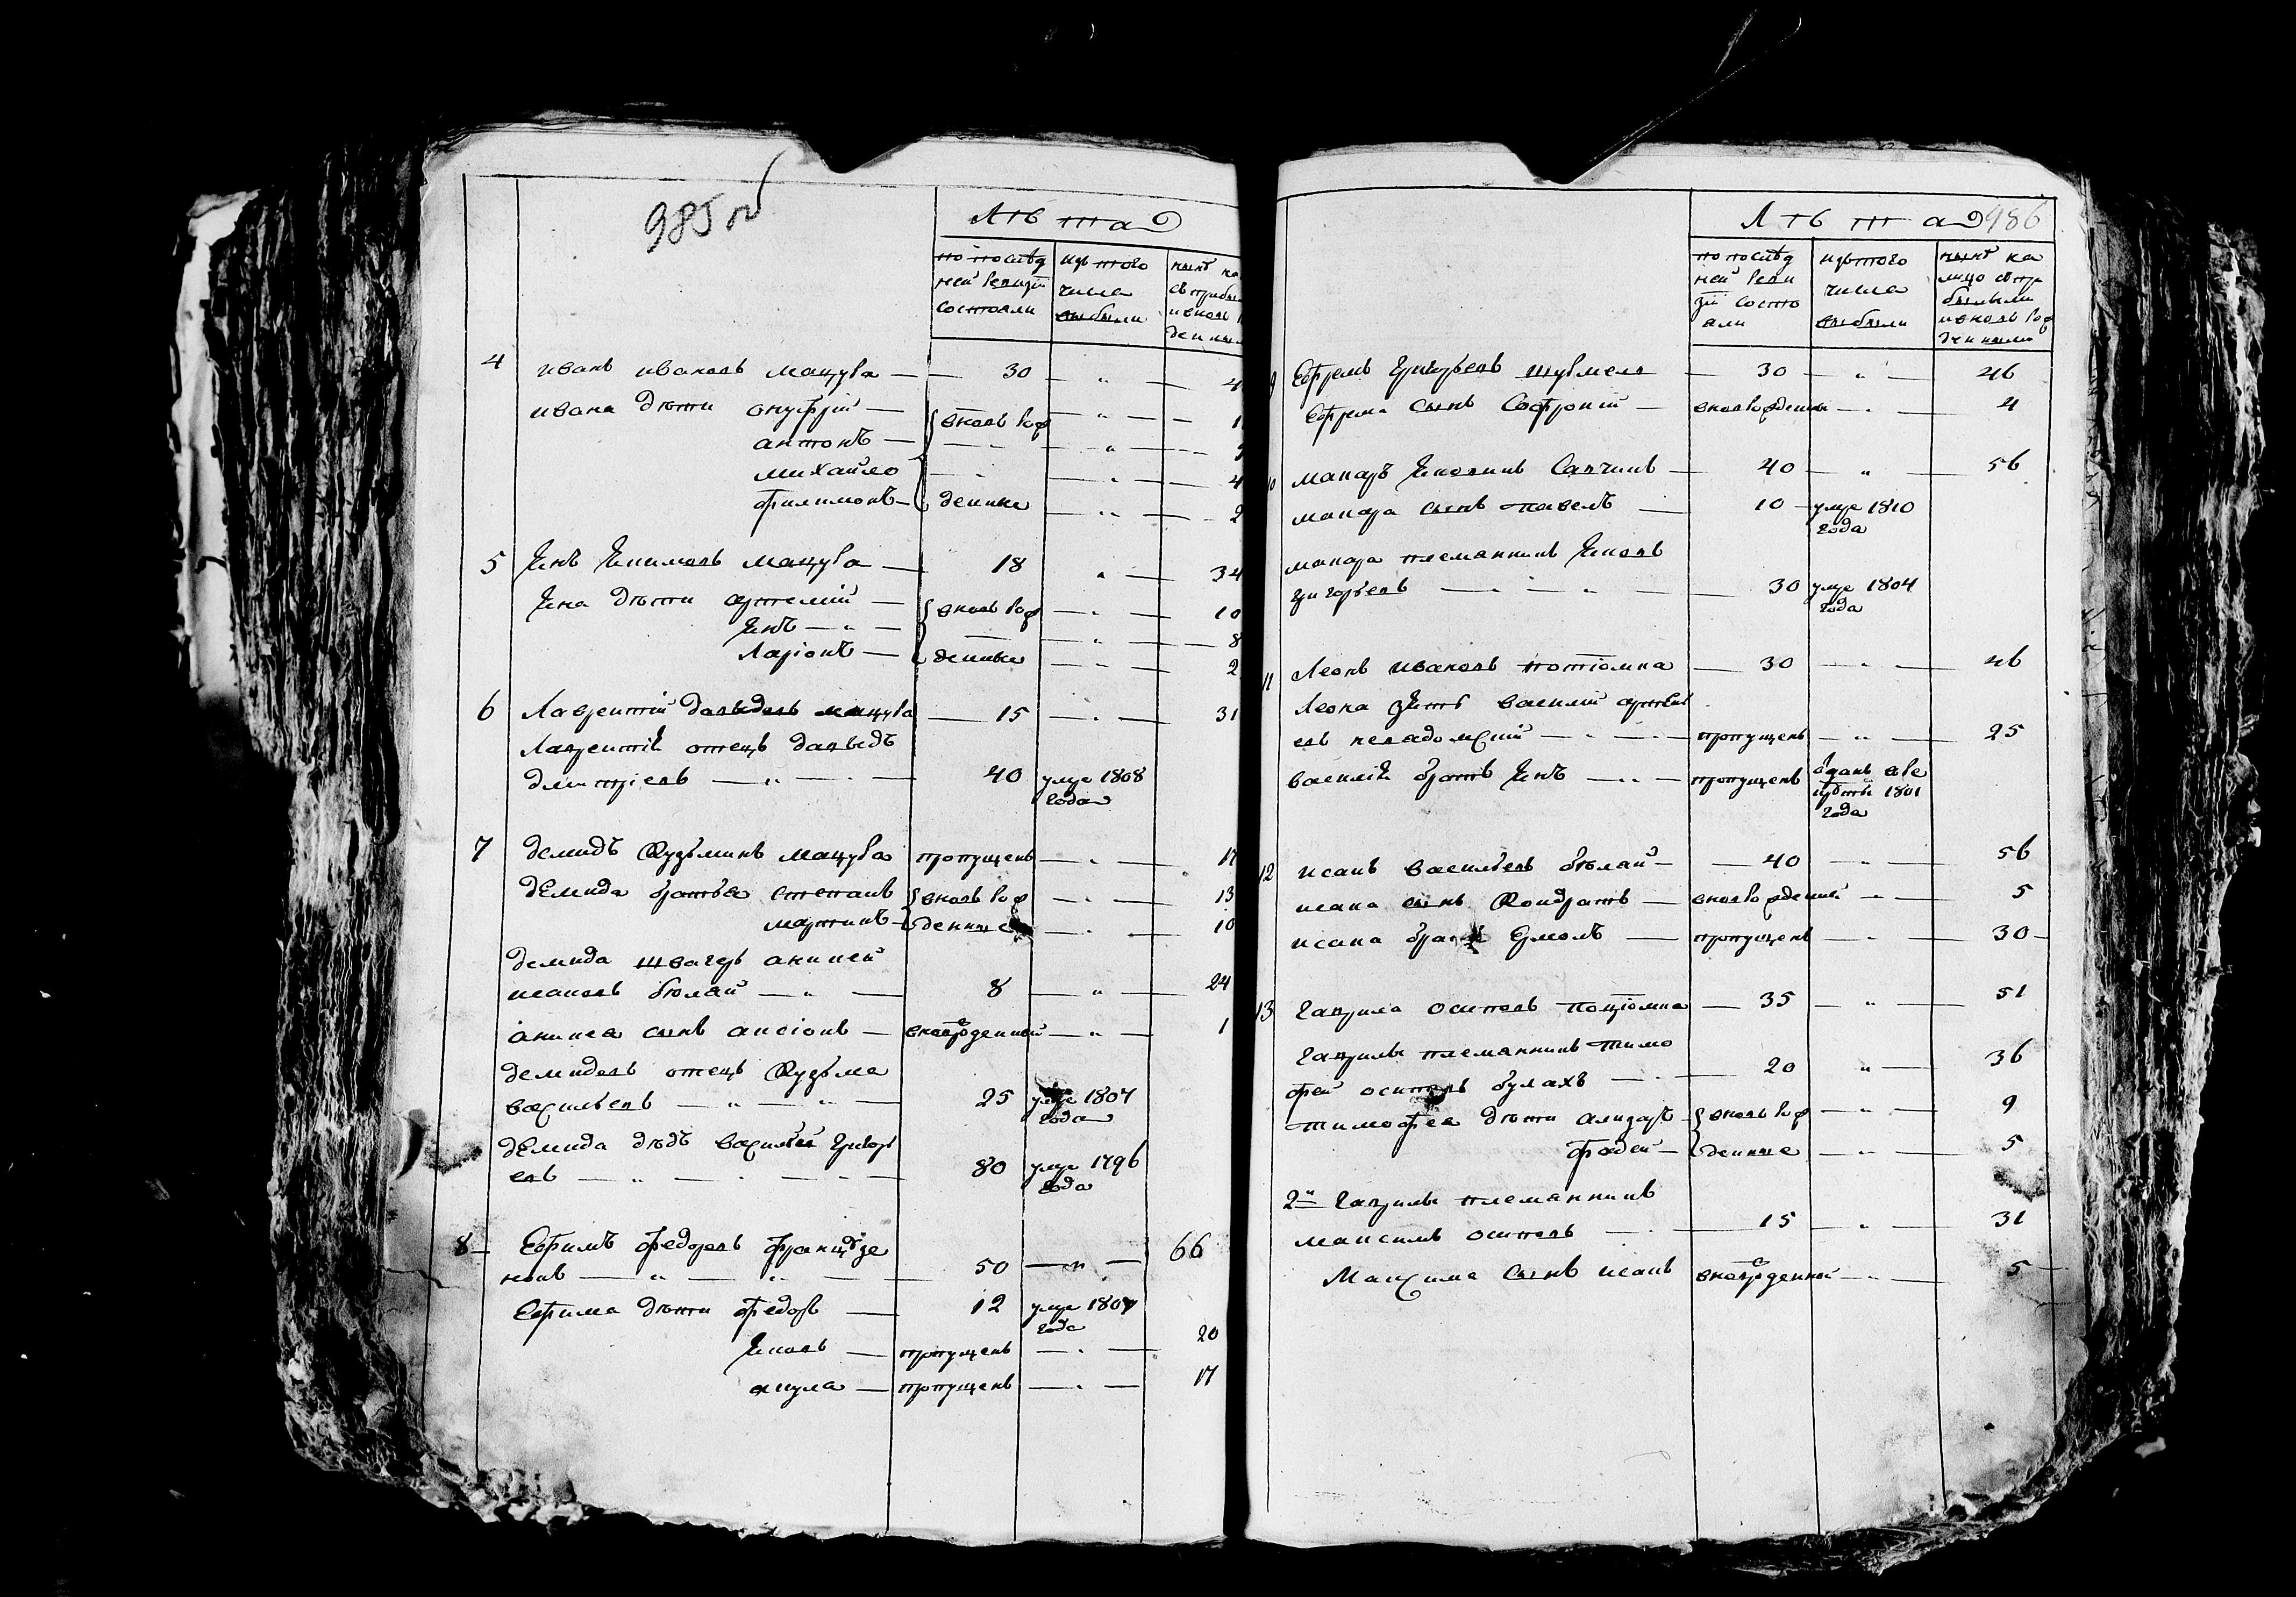 985 об
Лѣта
по послѣд ней ревизіи состояли
изъ того числа выбыли
нынѣ на
съ прибы
и вновь р
денным
4 иванъ ивановъ мацура — 30 — " — 4
ивана дѣти онуфрій — вновь рож — " — 1
антонъ — " —
михайло — " — 4
филимонъ — денные — " — 2
5 Якъ Якимовъ мацура — 18 — " — 34
Яка дѣти артемій — вновь рож — " — 10
Якъ — " — " — 8
Ларіонъ — денные — " — 2
6 Лаврентій давыдовъ мацура — 15 — " — 31
Лаврентія отецъ давыдъ
дмитріевъ — " — 40 умре 1808
года
7 демидъ Кузьминъ мацура пропущенъ — " — 17
демида братья степанъ вновь рож — " — 13
мартинъ — денные — " — 10
демида швагеръ аникей
исаковъ бѣлай — " — 8 — " — 24
аникея сынъ аксіонъ — вноврожденный — " — 1
демидовъ отецъ Кузьма
васильевъ — " — " — 25 умре 1807
года
демида дѣдъ василій григорь
евъ — " — 80 умре 1796
года
8 Ефимъ федоровъ французе
нокъ — " — " — 50 — " — 66
Ефима дѣти федоръ — 12 умре 1807
года
Яковъ — пропущенъ — " — 20
акула — пропущенъ — " — 17
Лѣта 986
по послѣд ней реви зіи состо яли
изъ того числа выбыли
нынѣ на лицо съ при былыми и вновь рож денными
9 Ефремъ Григорьевъ шувмела — 30 — " — 46
Ефрема сынъ Софроній — вновьрожденны — " — 4
10 макаръ Яковинъ Савчинъ — 40 — " — 56
макара сынъ павелъ — 10 — умре 1810
года
макара племянникъ Яковъ
григорьевъ — " — " — 30 умре 1804
года
11 Леонъ ивановъ потіомка — 30 — " — 46
Леона зять василій артемь
евъ невадомскій — " — пропущенъ — " — 25
василія братъ Якъ — " — пропущенъ отданъ в ре
круты 1801
года
12 исакъ васильевъ бѣлай — 40 — " — 56
исака сынъ Кондратъ — вновьрожденный — " — 5
исака братъ Ермолъ — пропущенъ — " — 30
13 гаврила осиповъ потіомка — 35 — " — 51
гаврилы племянникъ тимо
фей осиповъ булахъ — 20 — " — 36
тимофея дѣти елизаръ — вновь рож — " — 9
фадей — денные — " — 5
2й гаврилы племянникъ
максимъ осиповъ — 15 — " — 31
Максима сынъ исакъ вноврожденный — " — 5